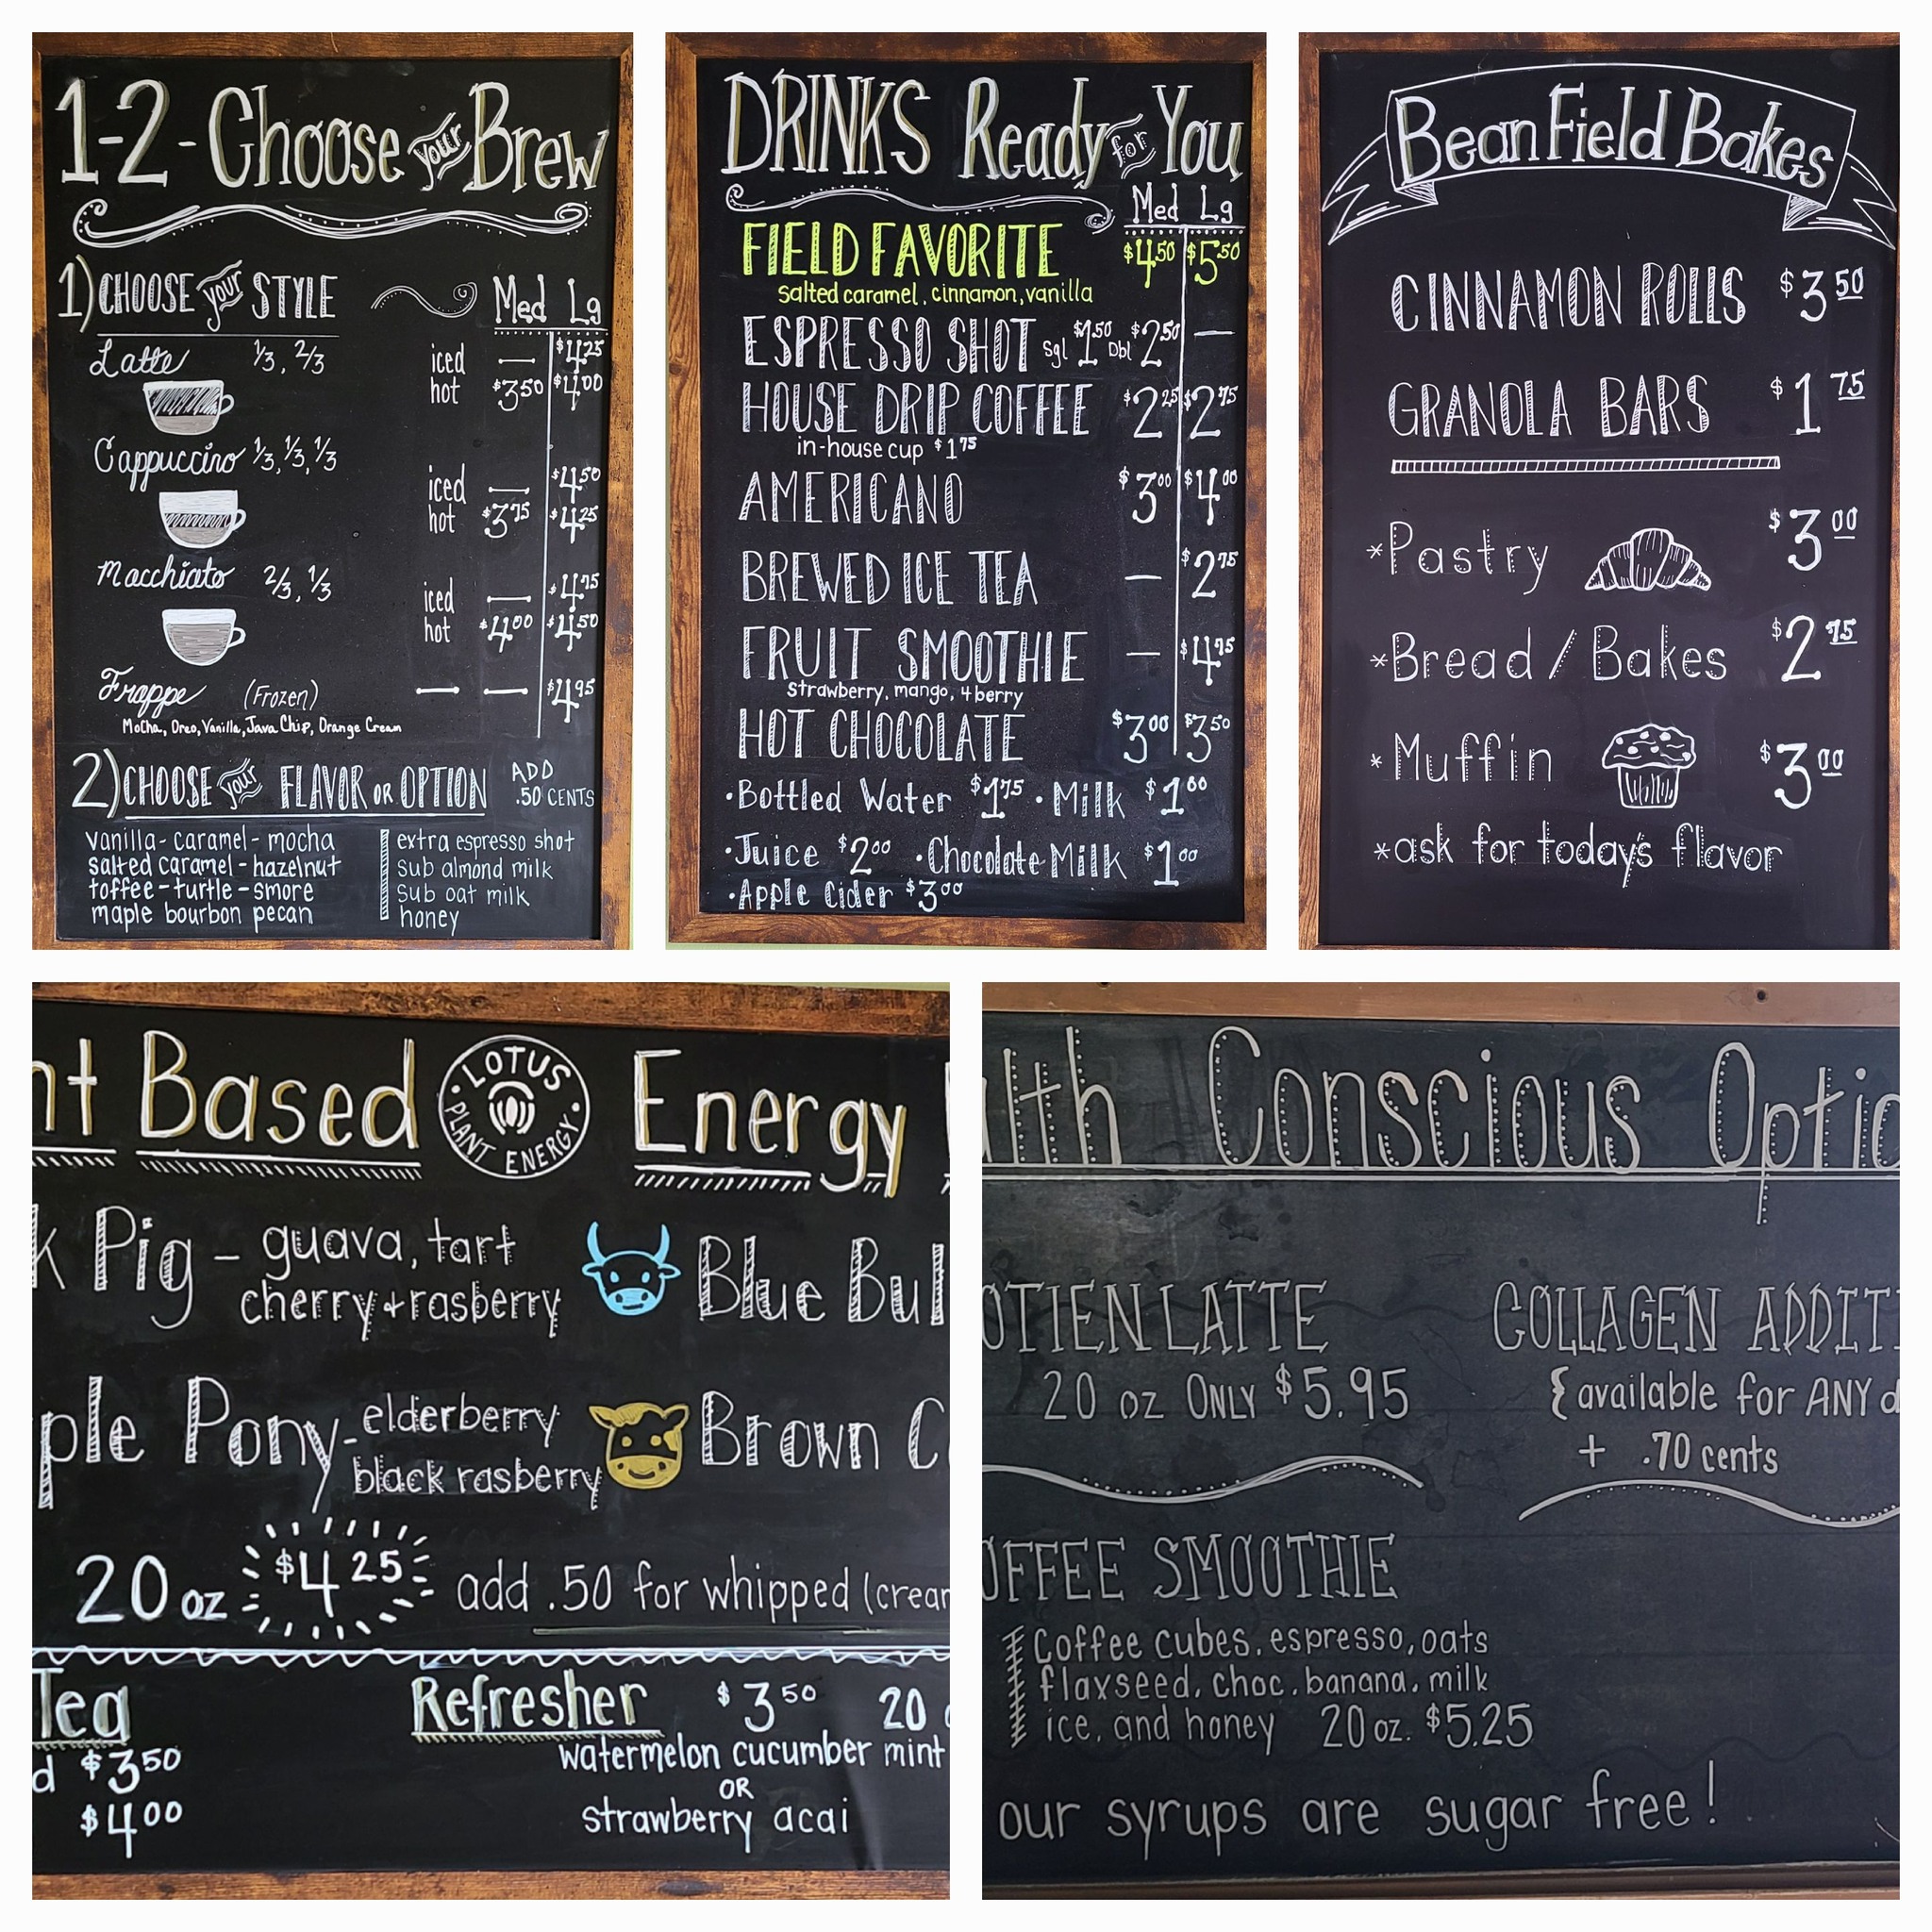 1-2-Choose your Brew
1) CHOOSE your STYLE Med Lg
Latte 1/3, 2/3 iced — $4.25
hot $3.50 $4.00
Cappuccino 1/3, 1/3, 1/3
iced — $4.50
hot $3.75 $4.25
Macchiato 2/3, 1/3
iced — $4.75
hot $4.00 $4.50
Frappe (Frozen) — — $4.95
Mocha, Oreo, Vanilla, Java Chip, Orange Cream
2) CHOOSE your FLAVOR OR OPTION ADD
.50 CENTS
vanilla - caramel - mocha
salted caramel - hazelnut
toffee - turtle - smore
maple bourbon pecan
extra espresso shot
sub almond milk
sub oat milk
honey
DRINKS Ready for You
Med Lg
FIELD FAVORITE $4.50 $5.50
salted caramel, cinnamon, vanilla
ESPRESSO SHOT Sgl $1.50 Dbl $2.50 —
HOUSE DRIP COFFEE $2.25 $2.75
in-house cup $1.75
AMERICANO $3.00 $4.00
BREWED ICE TEA — $2.75
FRUIT SMOOTHIE — $4.95
strawberry, mango, 4 berry
HOT CHOCOLATE $3.00 $3.50
•Bottled Water $1.75 •Milk $1.00
•Juice $2.00 •Chocolate Milk $1.00
•Apple Cider $3.00
Bean Field Bakes
CINNAMON ROLLS $3.50
GRANOLA BARS $1.75
*Pastry $3.00
*Bread / Bakes $2.75
*Muffin $3.00
*ask for today's flavor
nt Based LOTUS PLANT ENERGY Energy
k Pig - guava, tart
cherry + rasberry
Blue Bul
ple Pony - elderberry
black rasberry
Brown C
20 oz $4.25 add .50 for whipped (crear
Tea
d $3.50
$4.00
Refresher $3.50 20
watermelon cucumber mint
OR
strawberry acai
lth Conscious Optio
OTIEN LATTE
20 oz ONLY $5.95
COLLAGEN ADDITI
{ available for ANY d
+ .70 cents
OFFEE SMOOTHIE
Coffee cubes, espresso, oats
flaxseed, choc, banana, milk
ice, and honey 20 oz. $5.25
our syrups are sugar free!